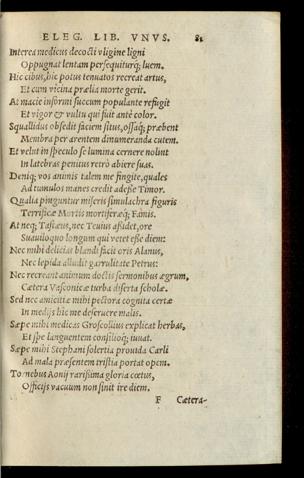 ELEG. LIB. VNVS. 81
Interea medicus decocti vligine ligni
Oppugnat lentam persequiturq́; luem.
Hic cibus, hic potus tenuatos recreat artus,
Et cum vicina prælia morte gerit.
At macie informi succum populante refugit
Et vigor & vultu qui fuit antè color.
Squallidus obsedit faciem situs, ossaq́; præbent
Membra per arentem dinumeranda cutem.
Et velut in speculo se lumina cernere nolunt
In latebras penitus retrò abiere suas.
Deniq; vos animis talem me fingite, quales
Ad tumulos manes credit adesse Timor.
Qualia pinguntur miseris simulachra figuris
Terrificæ Mortis mortiferæq́; Famis.
At neq; Tastæus, nec Tevius assidet, ore
Suauiloquo longum qui vetet esse diem:
Nec mihi delicias blandi facit oris Alanus,
Nec lepida alludit garrulitate Petrus:
Nec recreant animum doctis sermonibus ægrum,
Cætera Vasconicæ turba diserta scholæ.
Sed nec amicitiæ mihi pectora cognita certæ
In medijs hic me deseruere malis.
Sæpe mihi medicas Groscollius explicat herbas,
Et spe languentem consilioq́; iuuat.
Sæpe mihi Stephani solertia prouida Carli
Ad mala præsentem tristia portat opem.
Tornebus Aonij rarissima gloria cœtus,
Officijs vacuum non sinit ire diem.
F Cætera-